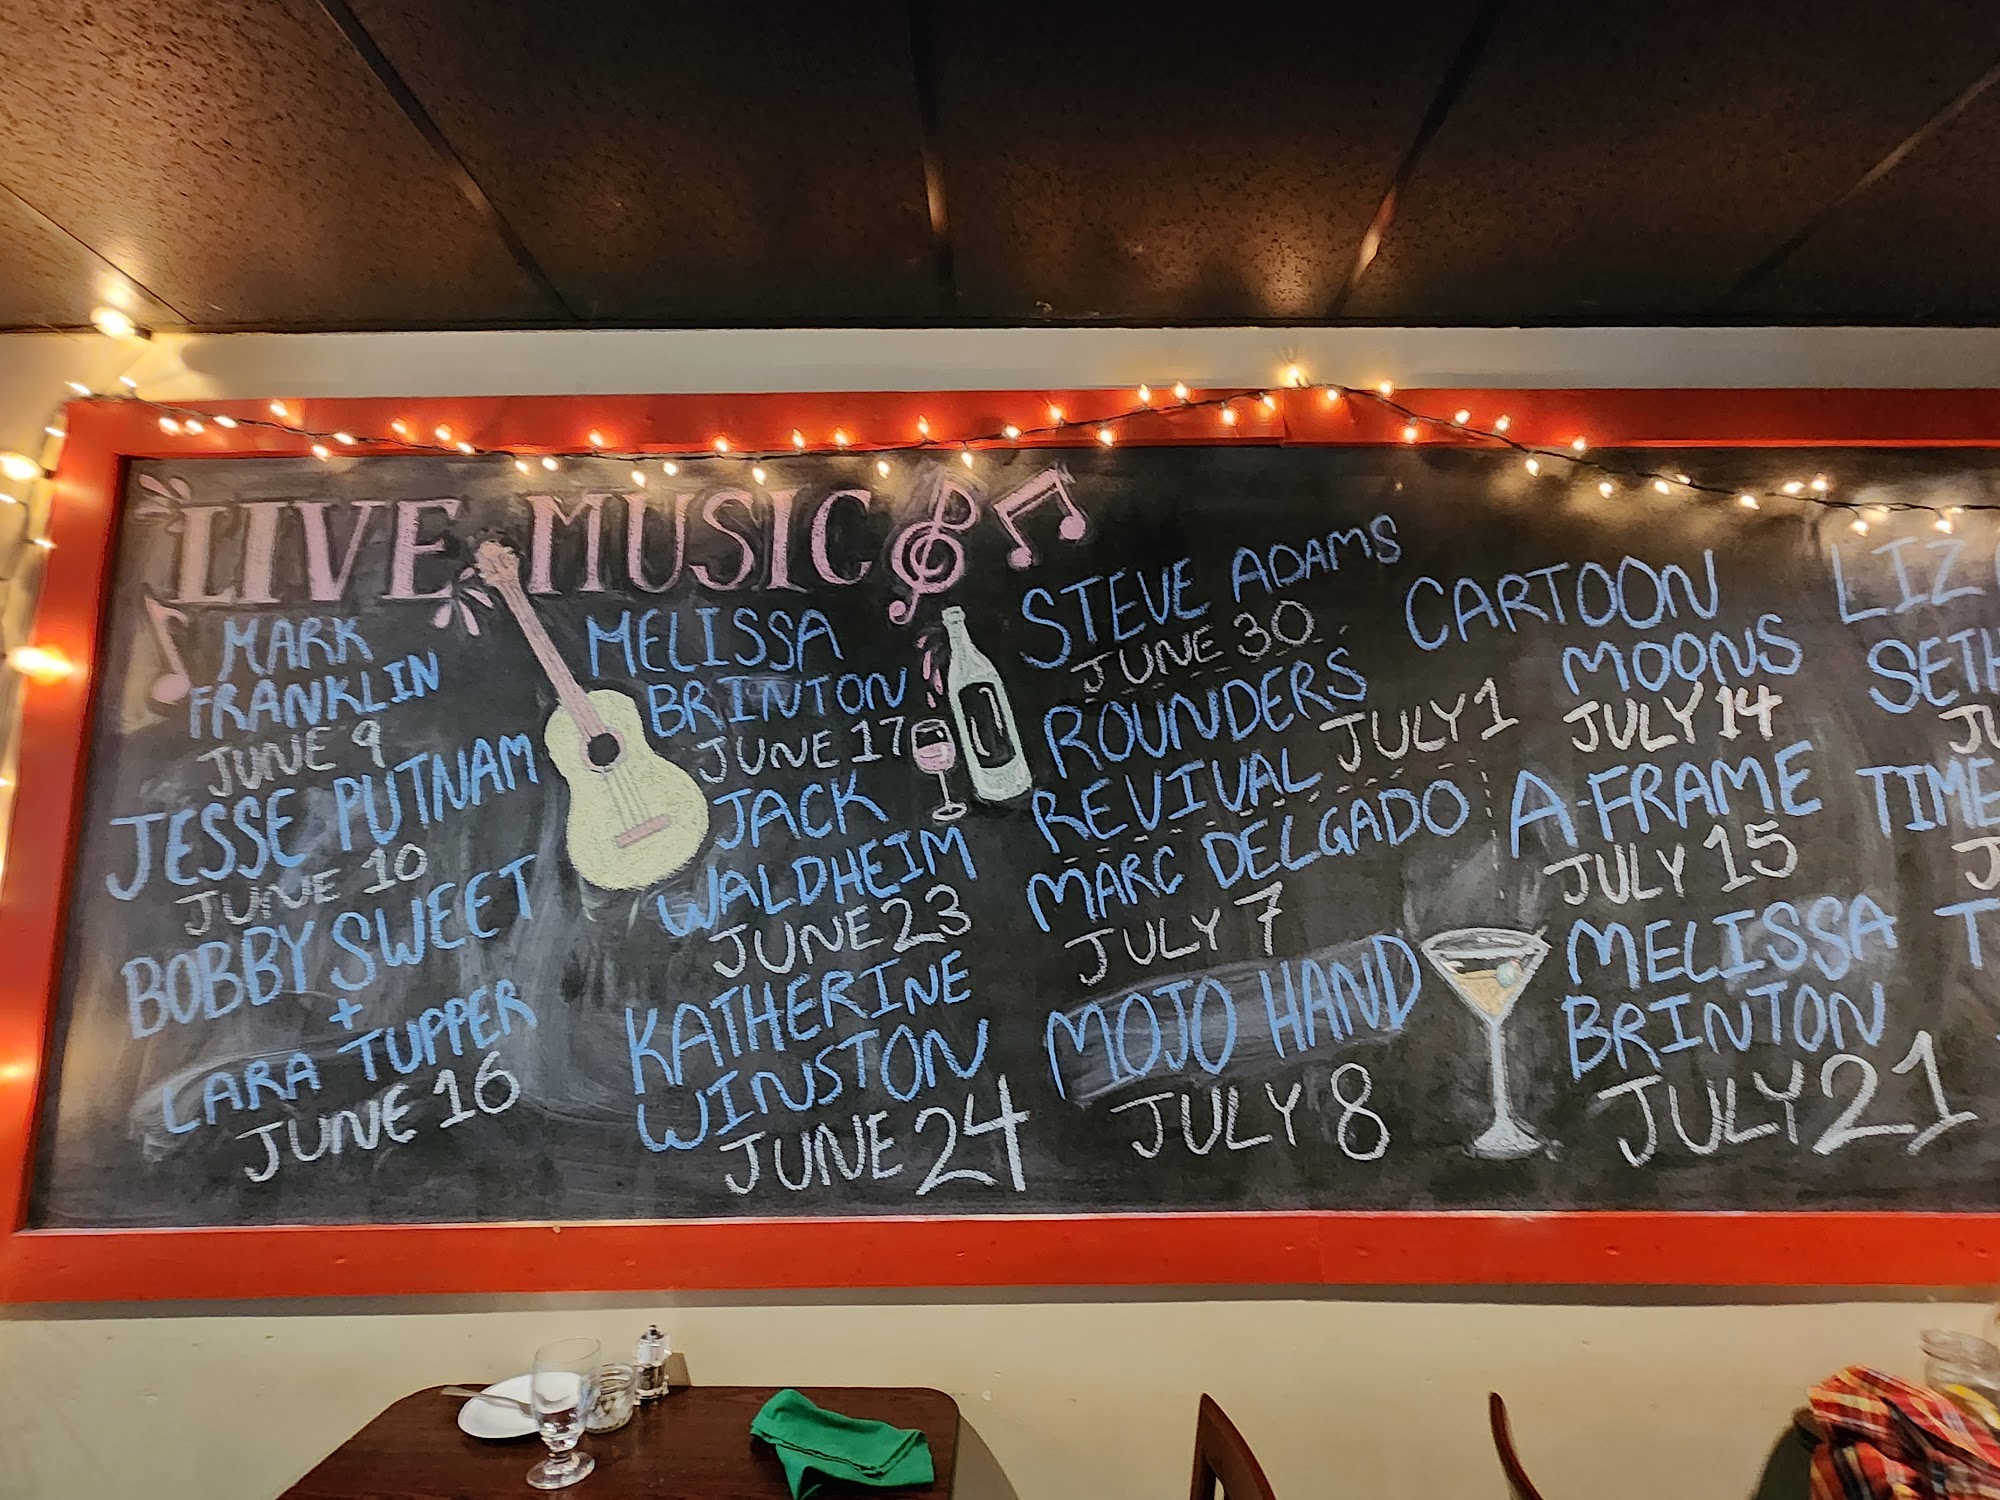 LIVE MUSIC
MARK
FRANKLIN
JUNE 9
JESSE PUTNAM
JUNE 10
BOBBY SWEET
+
LARA TUPPER
JUNE 16
MELISSA
BRINTON
JUNE 17
JACK
WALDHEIM
JUNE 23
KATHERINE
WINSTON
JUNE 24
STEVE ADAMS
JUNE 30
ROUNDERS
REVIVAL JULY 1
MARC DELGADO
JULY 7
MOJO HAND
JULY 8
CARTOON
MOONS
JULY 14
A-FRAME
JULY 15
MELISSA
BRINTON
JULY 21
LIZ
SETH
TIME